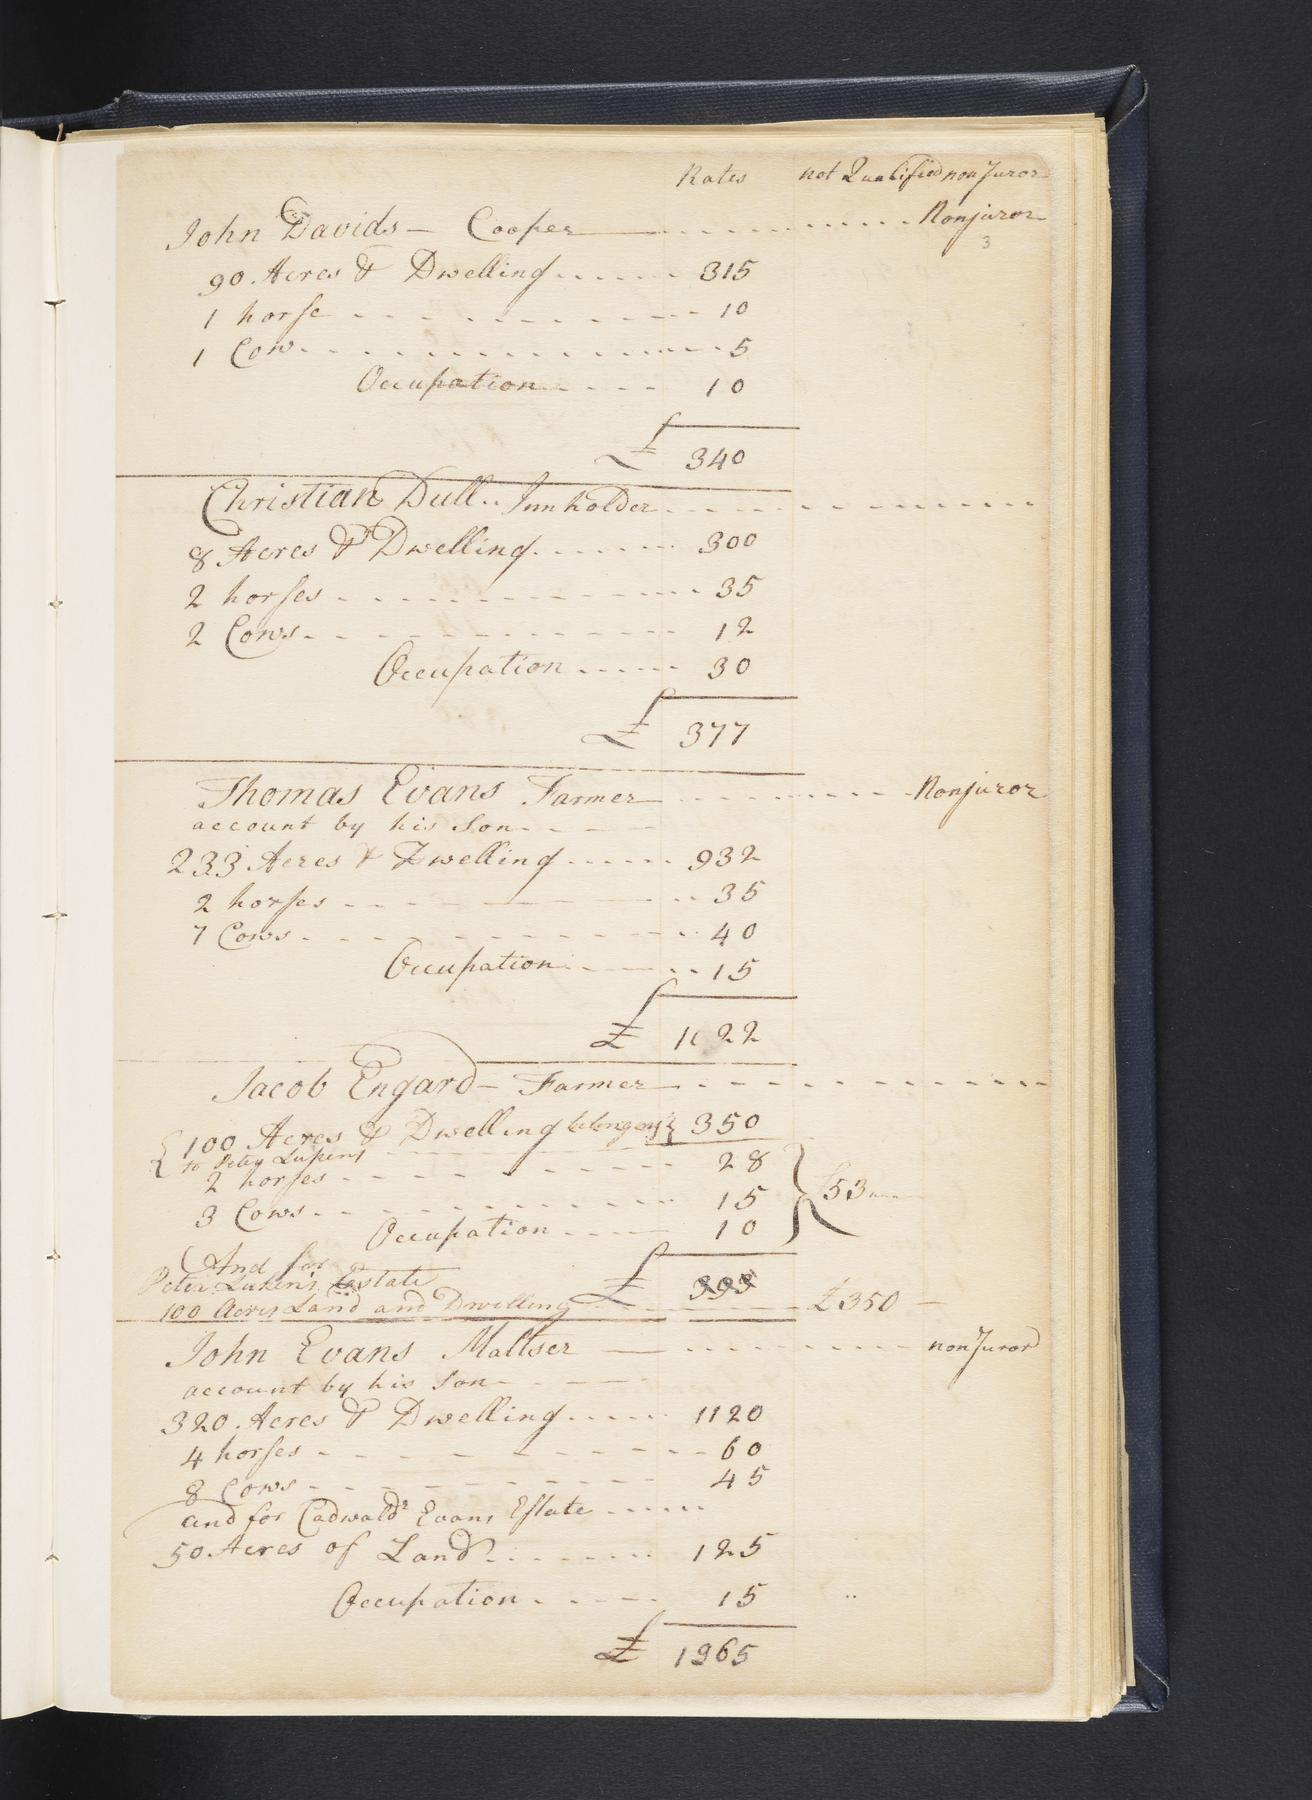 Rates not Qualified nonJuror
John Davids — Cooper Nonjuror
3
90 Acres & Dwelling 315
1 horse 10
1 Cow 5
Occupation 10
£ 340
Christian Dull Innholder
8 Acres & Dwelling 300
2 horses 35
2 Cows 12
Occupation 30
£ 377
Thomas Evans Farmer Nonjuror
account by his Son
233 Acres & Dwelling 932
2 horses 35
7 Cows 40
Occupation 15
£ 1022
Jacob Engard — Farmer
100 Acres & Dwelling belonging 350
to Peter Lukens
2 horses 28
3 Cows 15 £53
Occupation 10
And for
Peter Luken's Estate £
100 Acres Land and Dwelling £350
John Evans Maltser nonJuror
account by his Son
320 Acres & Dwelling 1120
4 horses 60
8 Cows 45
and for Cadwaldr Evans Estate
50 Acres of Land 125
Occupation 15
£ 1365